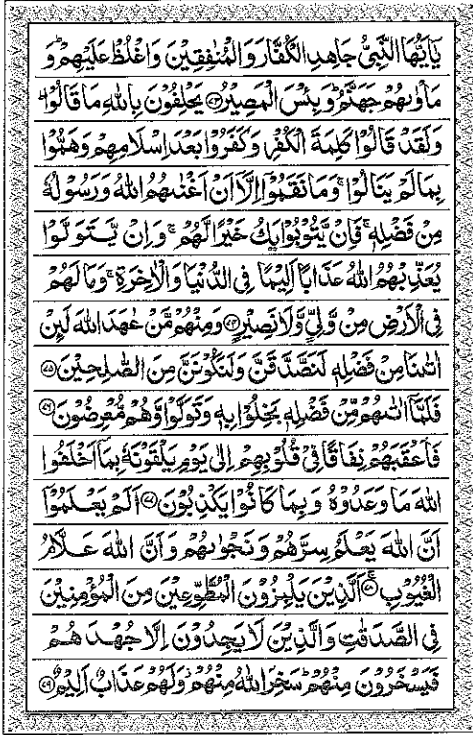 يٰۤاَيُّهَا النَّبِيُّ جَاهِدِ الْكُفَّارَ وَالْمُنٰفِقِيْنَ وَاغْلُظْ عَلَيْهِمْ ؕ وَ
مَاْوٰىهُمْ جَهَنَّمُ ؕ وَبِئْسَ الْمَصِيْرُ ۝۷۳ يَحْلِفُوْنَ بِاللّٰهِ مَا قَالُوْا ؕ
وَلَقَدْ قَالُوْا كَلِمَةَ الْكُفْرِ وَكَفَرُوْا بَعْدَ اِسْلَامِهِمْ وَهَمُّوْا
بِمَا لَمْ يَنَالُوْا ۚ وَمَا نَقَمُوْۤا اِلَّاۤ اَنْ اَغْنٰىهُمُ اللّٰهُ وَرَسُوْلُهٗ
مِنْ فَضْلِهٖ ۚ فَاِنْ يَّتُوْبُوْا يَكُ خَيْرًا لَّهُمْ ۚ وَاِنْ يَّتَوَلَّوْا
يُعَذِّبْهُمُ اللّٰهُ عَذَابًا اَلِيْمًا فِي الدُّنْيَا وَالْاٰخِرَةِ ۚ وَمَا لَهُمْ
فِي الْاَرْضِ مِنْ وَّلِيٍّ وَّلَا نَصِيْرٍ ۝۷۴ وَمِنْهُمْ مَّنْ عٰهَدَ اللّٰهَ لَئِنْ
اٰتٰىنَا مِنْ فَضْلِهٖ لَنَصَّدَّقَنَّ وَلَنَكُوْنَنَّ مِنَ الصّٰلِحِيْنَ ۝۷۵
فَلَمَّاۤ اٰتٰىهُمْ مِّنْ فَضْلِهٖ بَخِلُوْا بِهٖ وَتَوَلَّوْا وَّهُمْ مُّعْرِضُوْنَ ۝۷۶
فَاَعْقَبَهُمْ نِفَاقًا فِيْ قُلُوْبِهِمْ اِلٰى يَوْمِ يَلْقَوْنَهٗ بِمَاۤ اَخْلَفُوا
اللّٰهَ مَا وَعَدُوْهُ وَبِمَا كَانُوْا يَكْذِبُوْنَ ۝۷۷ اَلَمْ يَعْلَمُوْۤا
اَنَّ اللّٰهَ يَعْلَمُ سِرَّهُمْ وَنَجْوٰىهُمْ وَاَنَّ اللّٰهَ عَلَّامُ
الْغُيُوْبِ ۝۷۸ اَلَّذِيْنَ يَلْمِزُوْنَ الْمُطَّوِّعِيْنَ مِنَ الْمُؤْمِنِيْنَ
فِي الصَّدَقٰتِ وَالَّذِيْنَ لَا يَجِدُوْنَ اِلَّا جُهْدَهُمْ
فَيَسْخَرُوْنَ مِنْهُمْ ؕ سَخِرَ اللّٰهُ مِنْهُمْ ؗ وَلَهُمْ عَذَابٌ اَلِيْمٌ ۝۷۹